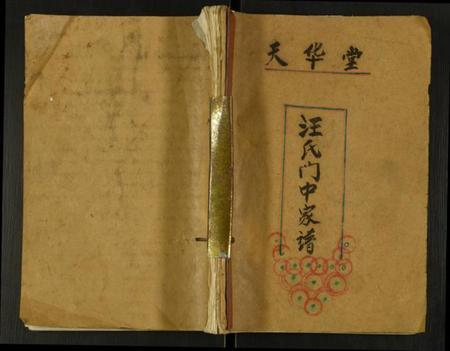 天华堂
汪氏门中家谱